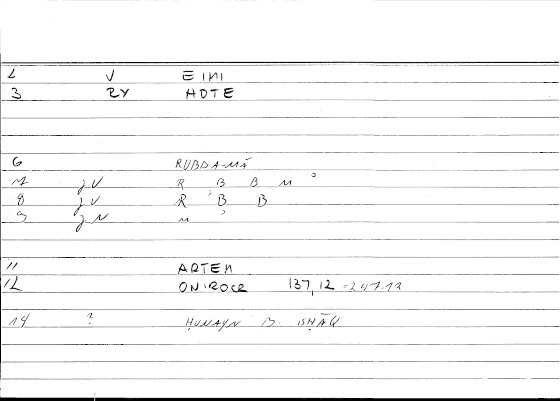 2 V EINI
3 RY HOTE
6 RUBDA-MĀ
7 jV R B B M ʾ
8 jV R ʾ B B
9 jN M ʾ
11 ARTEM
12 ONIROCR 137,12 = 247.12
14 ? ḤUNAYN B. ISḤĀQ